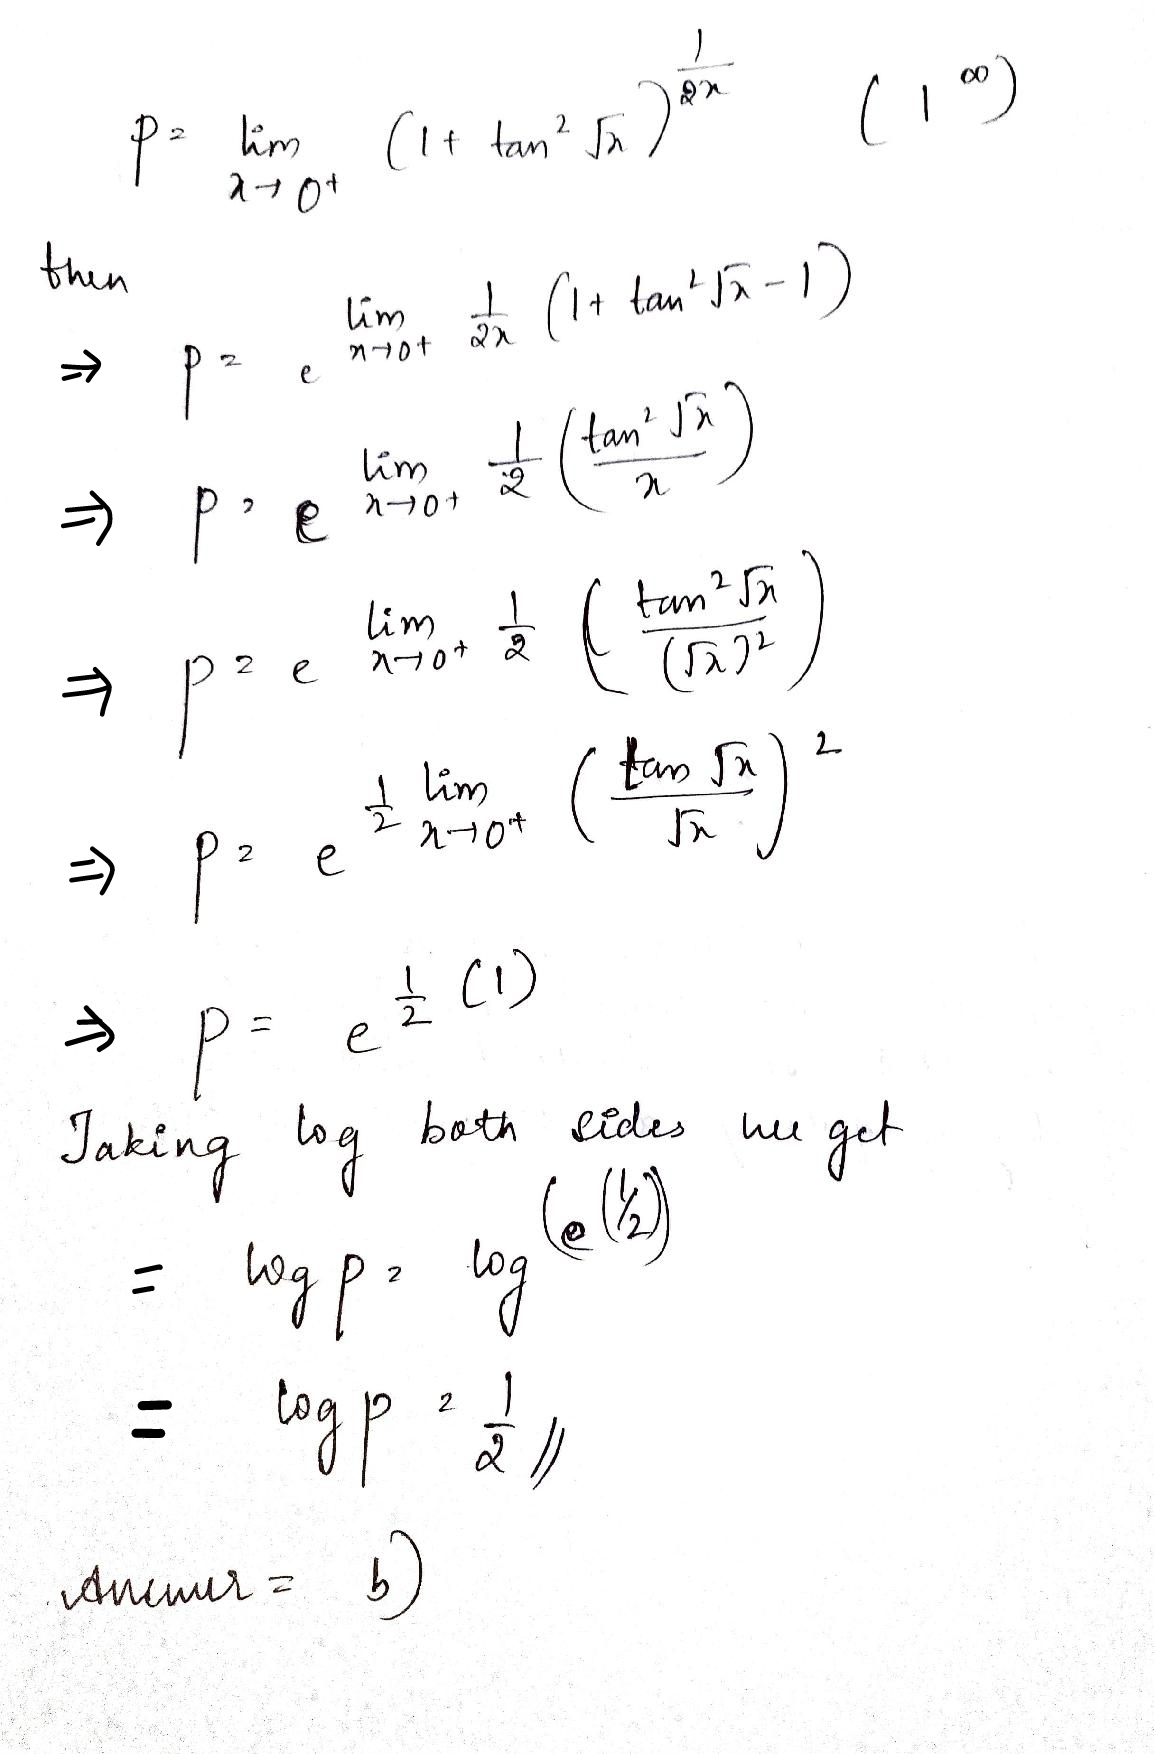 p = lim x→0+ (1 + tan² √x)^(1/2x) (1^∞)
then
⇒ p = e^(lim x→0+ 1/2x (1 + tan² √x - 1))
⇒ p = e^(lim x→0+ 1/2 (tan² √x / x))
⇒ p = e^(lim x→0+ 1/2 (tan² √x / (√x)²))
⇒ p = e^(1/2 lim x→0+ (tan √x / √x)²)
⇒ p = e^(1/2 (1))
Taking log both sides we get
= log p = log (e^(1/2))
= log p = 1/2 //
Answer = b)